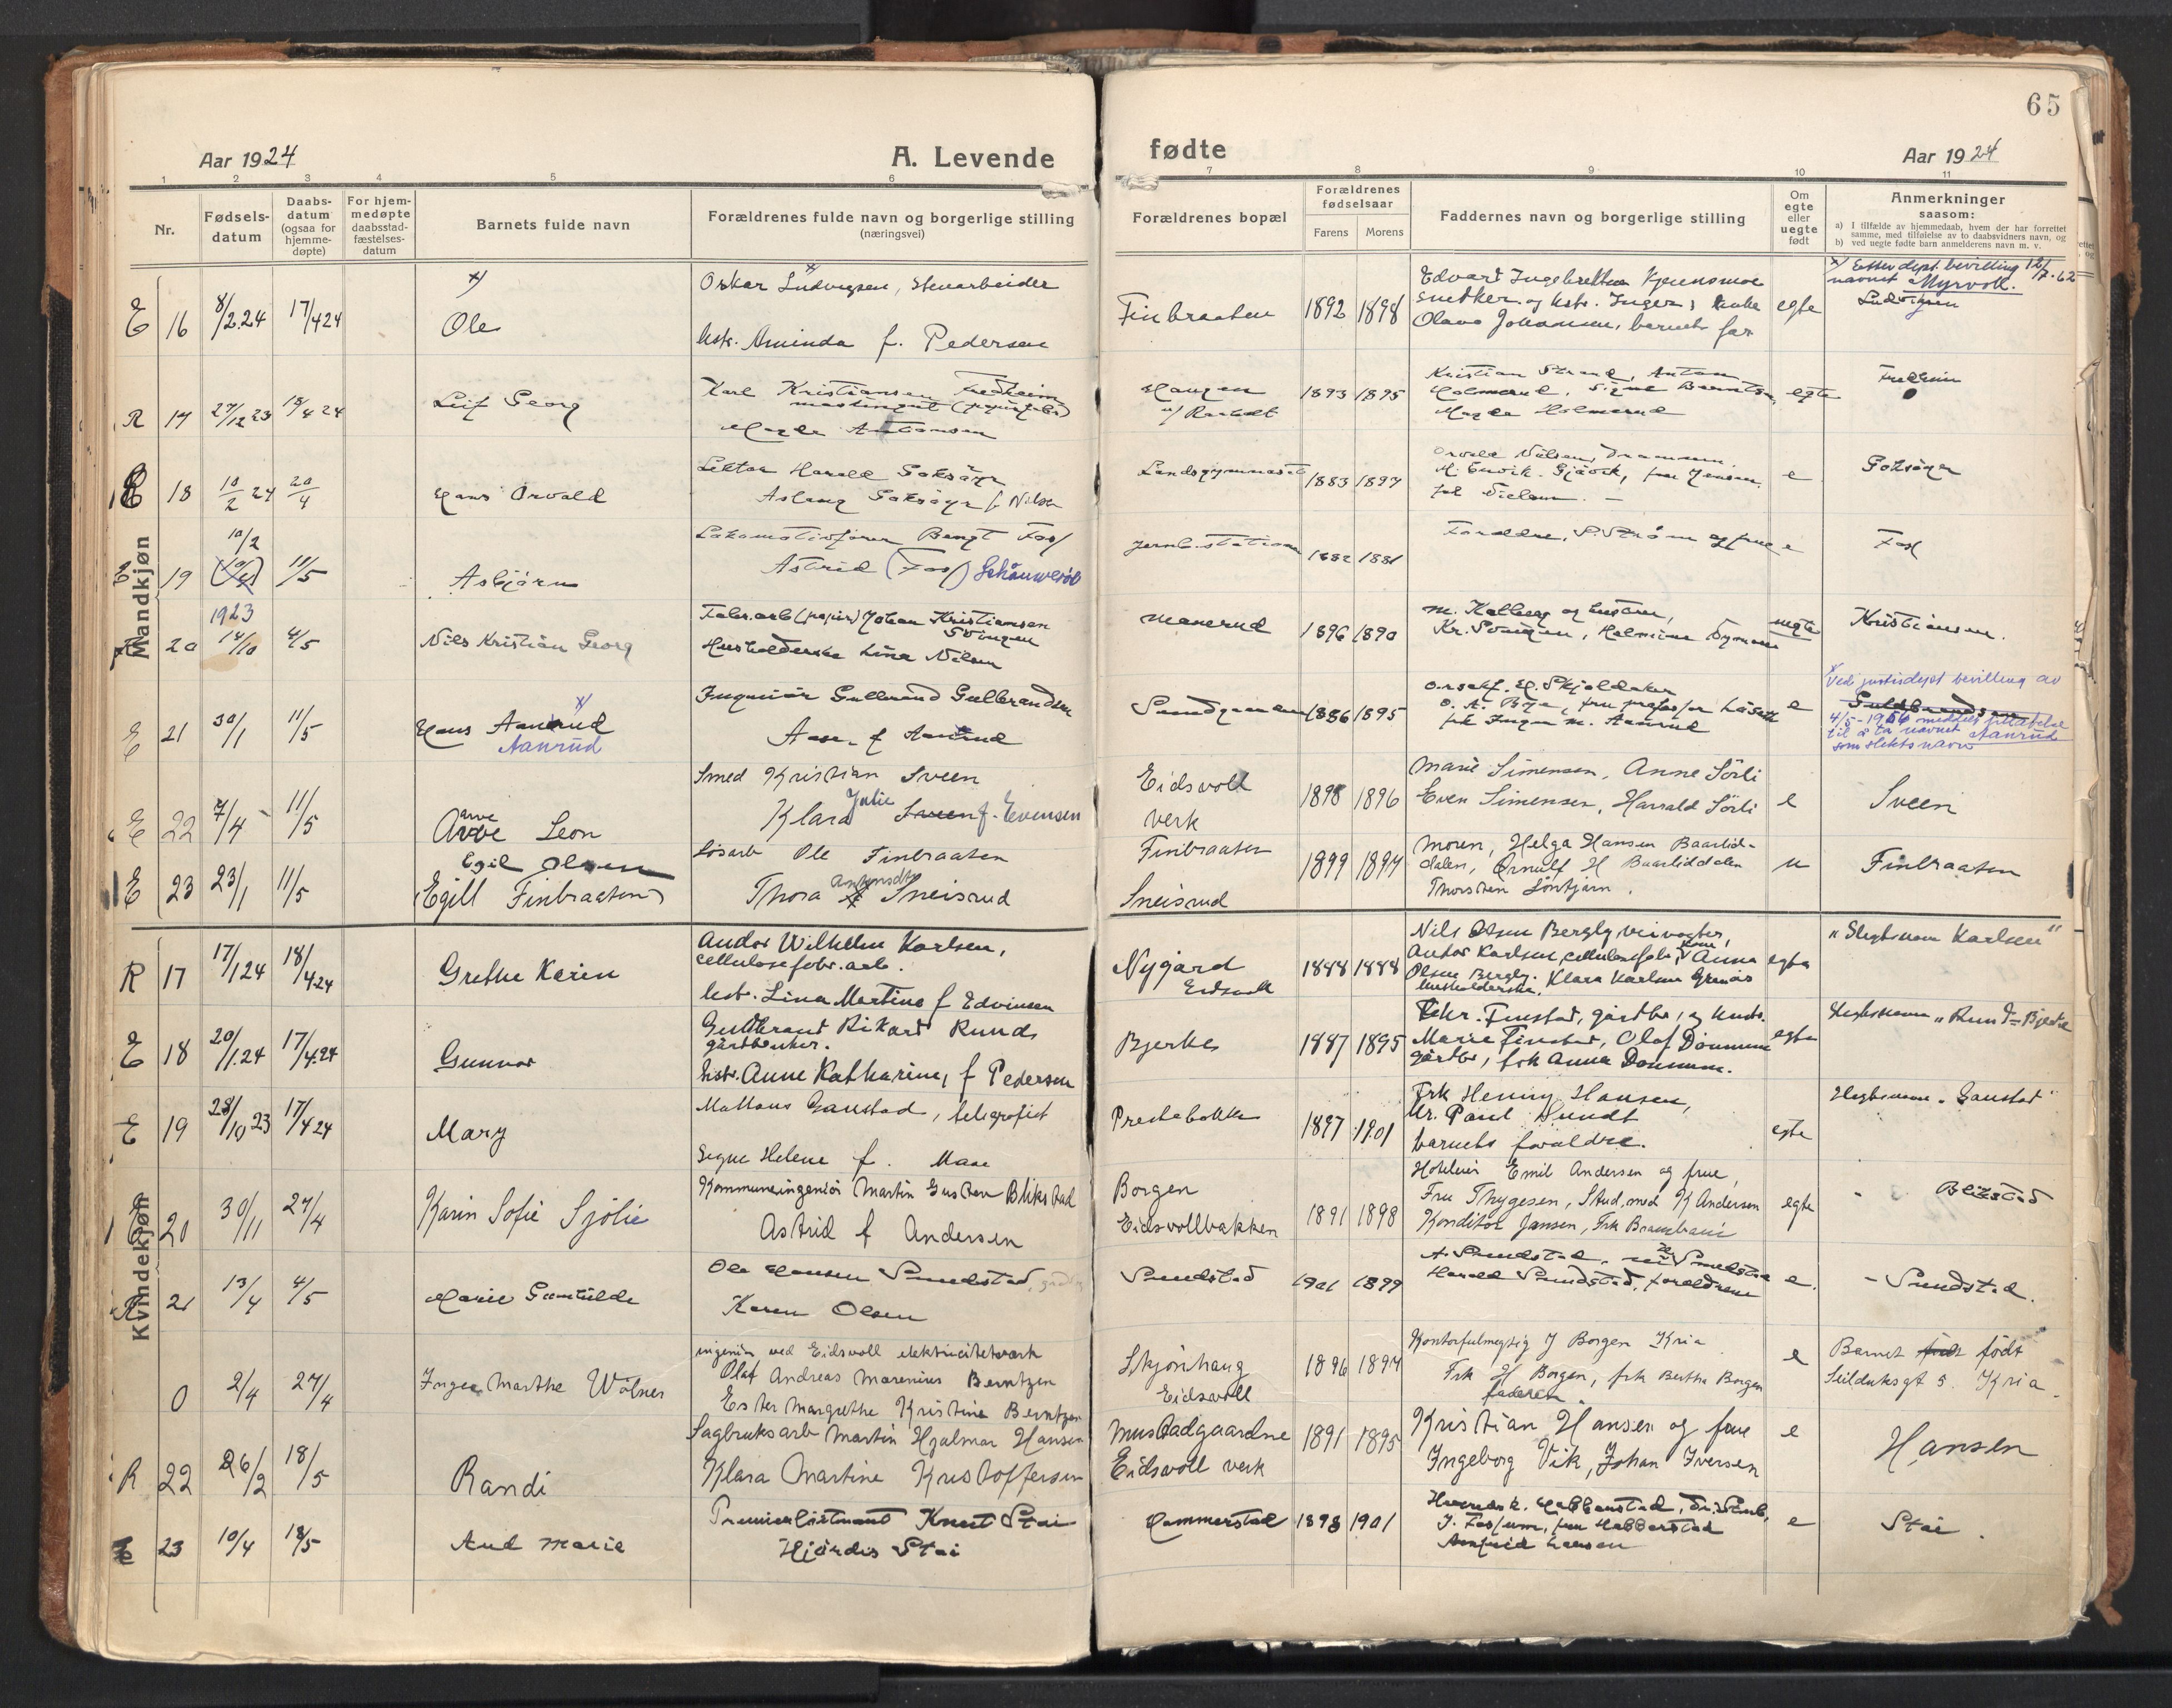 65
Aar 1924
A. Levende
fødte
Aar 1924
1 2 3 4 5 6 7 8 9 10 11
Nr.
Fødsels-
datum
Daabs-
datum
(ogsaa for
hjemme-
døpte)
For hjem-
medøpte
daabsstad-
fæstelses-
datum
Barnets fulde navn
Forældrenes fulde navn og borgerlige stilling
(næringsvei)
Forældrenes bopæl
Forældrenes
fødselsaar
Farens Morens
Faddernes navn og borgerlige stilling
Om
egte
eller
uegte
født
Anmerkninger
saasom:
a) I tilfælde av hjemmedaab, hvem der har forrettet
samme, med tilføielse av to daabsvidners navn, og
b) ved uegte fødte barn anmelderens navn m. v.
Mandkjøn
E 16 8/2.24 17/4 24
x)
Ole
Oskar Ludvigsen, Stenarbeider
hstr. Aminda f. Pedersen
Finbraaten 1892 1898
snedker og hstr. Inger,
Olava Johansen, barnets far
egte
x) Efter dept. bevilling 12/7-62
navnet Myrvoll.
Ludvigsen
R 17 27/12 23 13/4 24
Leif Georg
Karl Kristiansen Fredheim
Magda
Haugen
v/ Raaholt
1893 1895
Kristian Strand, Anton
Holmerud, Signe
Magda Holmerud
egte
Fredheim
18 10/2 24 20/4
Hans Orvald
Lektor Harald Goksøyr
Aslaug Goksøyr f. Nilsen
Landsgymnaset 1883 1897
Orvald Nilsen, Drammen
Gjøvik, fru Jensen
e
Goksøyr
E 19 10/2 11/5
Asbjørn
Lokomotivfører Bengt Foss
Astrid (Foss)
Jernb. station 1882 1881
Foreldre, S. Strøm og frue e
Foss
1923
20 14/10 4/5
Nils Kristian Georg
Fabr.arb (papir) Johan Kristiansen
Svingen
Husholderske Lina Nilsen
Manerud 1896 1890
M. Kolberg og hustru,
Kr. Svingen, Halmine
uegte
Kristiansen.
E 21 30/1 11/5
x)
Hans Aanrud
Aanrud
Ingeniør Gulbrand Gulbrandsen
Aase f Aanrud
Sundgaarden 1886 1895
O.r.sakf. H. Skjoldaker
frk Inger M. Aanrud
e
x Ved justisdept bevilling av
Guldbrandsen
4/5-1956 meddelt tillatelse
til å ta navnet Aanrud
som slektsnavn
E 22 7/4 11/5
Arve
Arve Leon
Smed Kristian Sveen
Julie
Klara Sveen f. Evensen
Eidsvold
verk
1898 1896
Marie Simensen, Anne Sörli
Even Simensen, Harald Sörli
e
Sveen
E 23 23/1 11/5
Egil Olsen
(Egill Finbraaten)
Løsarb Ole Finbraaten
Thora Sneisrud
Finbraaten
Sneisrud
1899 1897
Moren, Helga Hansen Baarlid-
dalen, Ørnulf H Baarliddalen
Thorsten Löntjarn.
u
Finbraaten
Kvindekjøn
R 17 17/1 24 18/4 24
Grethe Karin
Andor Wilhelm Karlsen,
cellulosefabr. arb.
hstr. Lina Martine f Edvinsen
Nygård
Eidsvoll
1888 1888
Nils Olsen Bergly veivogter,
Andor Karlsen, cellulosefabr, Anna
Olsen Bergly. Klara Karlsen Grønås
husholderske.
egte
"Slegtsnavn Karlsen"
E 18 20/1.24 17/4.24
Gunvor
Guldbrand Rikard Runds
gårdbruker.
hstr. Anne Katharine, f Pedersen
Bjerke 1887 1895
Chr. Finstad, gårdbr, og hustr.
Marie Finstad, Olaf Dønnum
gårdbr, frk Anna Dønnum.
egte
Slegtsnavn "Rund-Bjerke
E 19 28/10 23 17/4 24
Mary
Mattæus Ganstad, telegrafist
Signe Helene f.
Prestebakke 1897 1901
Frk Henny Hansen,
Hr. Paul Sundt
barnets foreldre.
egte
Slegtsnavn "Ganstad"
E 20 30/11 27/4
Karin Sofie Sjölie
Kommuneingeniör Martin Gustav Blikstad
Astrid f Andersen
Borgen
Eidsvollbakken
1891 1898
Hoteleier Emil Andersen og frue,
Fru Thygesen, Stud. med K Andersen
Konditor Jansen, Frk
egte
Blikstad
R 21 13/4 4/5
Marie Gunhilde
Ole Hansen Sundstad,
Karen Olsen
Sundstad 1901 1899
A. Sundstad,
Harald Sundstad, foreldrene
e.
- Sundstad.
0 2/4 27/4
Inger Marthe Wölner
ingeniör ved Eidsvoll elektricitetsverk
Olaf Andreas Marenius Berntzen
Ester Margrethe Kristine Berntzen
Skjönhaug
Eidsvoll
1896 1897
Kontorfulmegtig J Borgen Kria
Frk H Borgen, frk Bertha Borgen
faderen.
e
Barnet födt
Seilduksgt 5. Kria.
R 22 26/2 18/5
Randi
Sagbruksarb Martin Hjalmar Hansen
Klara Martine Kristoffersen
Mustadgaardne
Eidsvoll verk
1891 1895
Kristian Hansen og frue
Ingeborg Vik, Johan Iversen
e
Hansen
E 23 10/4 18/5
Aud Marie
Premierløitnant Knut Stai
Hjørdis Stai
Hammerstad 1893 1901
J. Fossum, fru Habberstad
e
Stai.